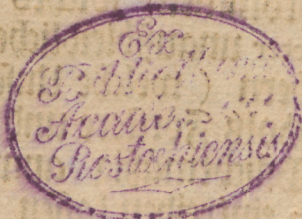 Ex
Bibliotheca
Academ
Rostochiensis